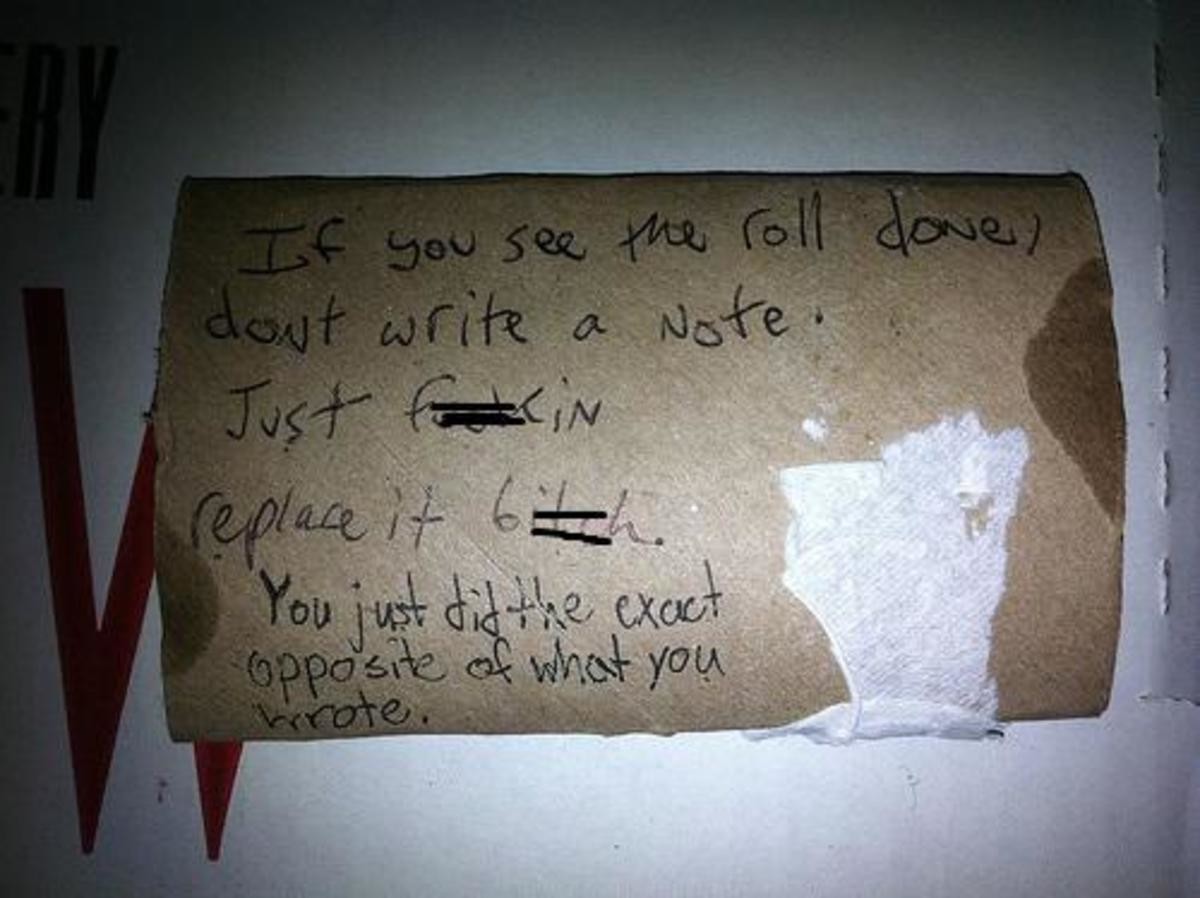 ERY
If you see the roll done,
dont write a note.
Just fuckin
replace it bitch.
You just did the exact
opposite of what you
wrote.
W